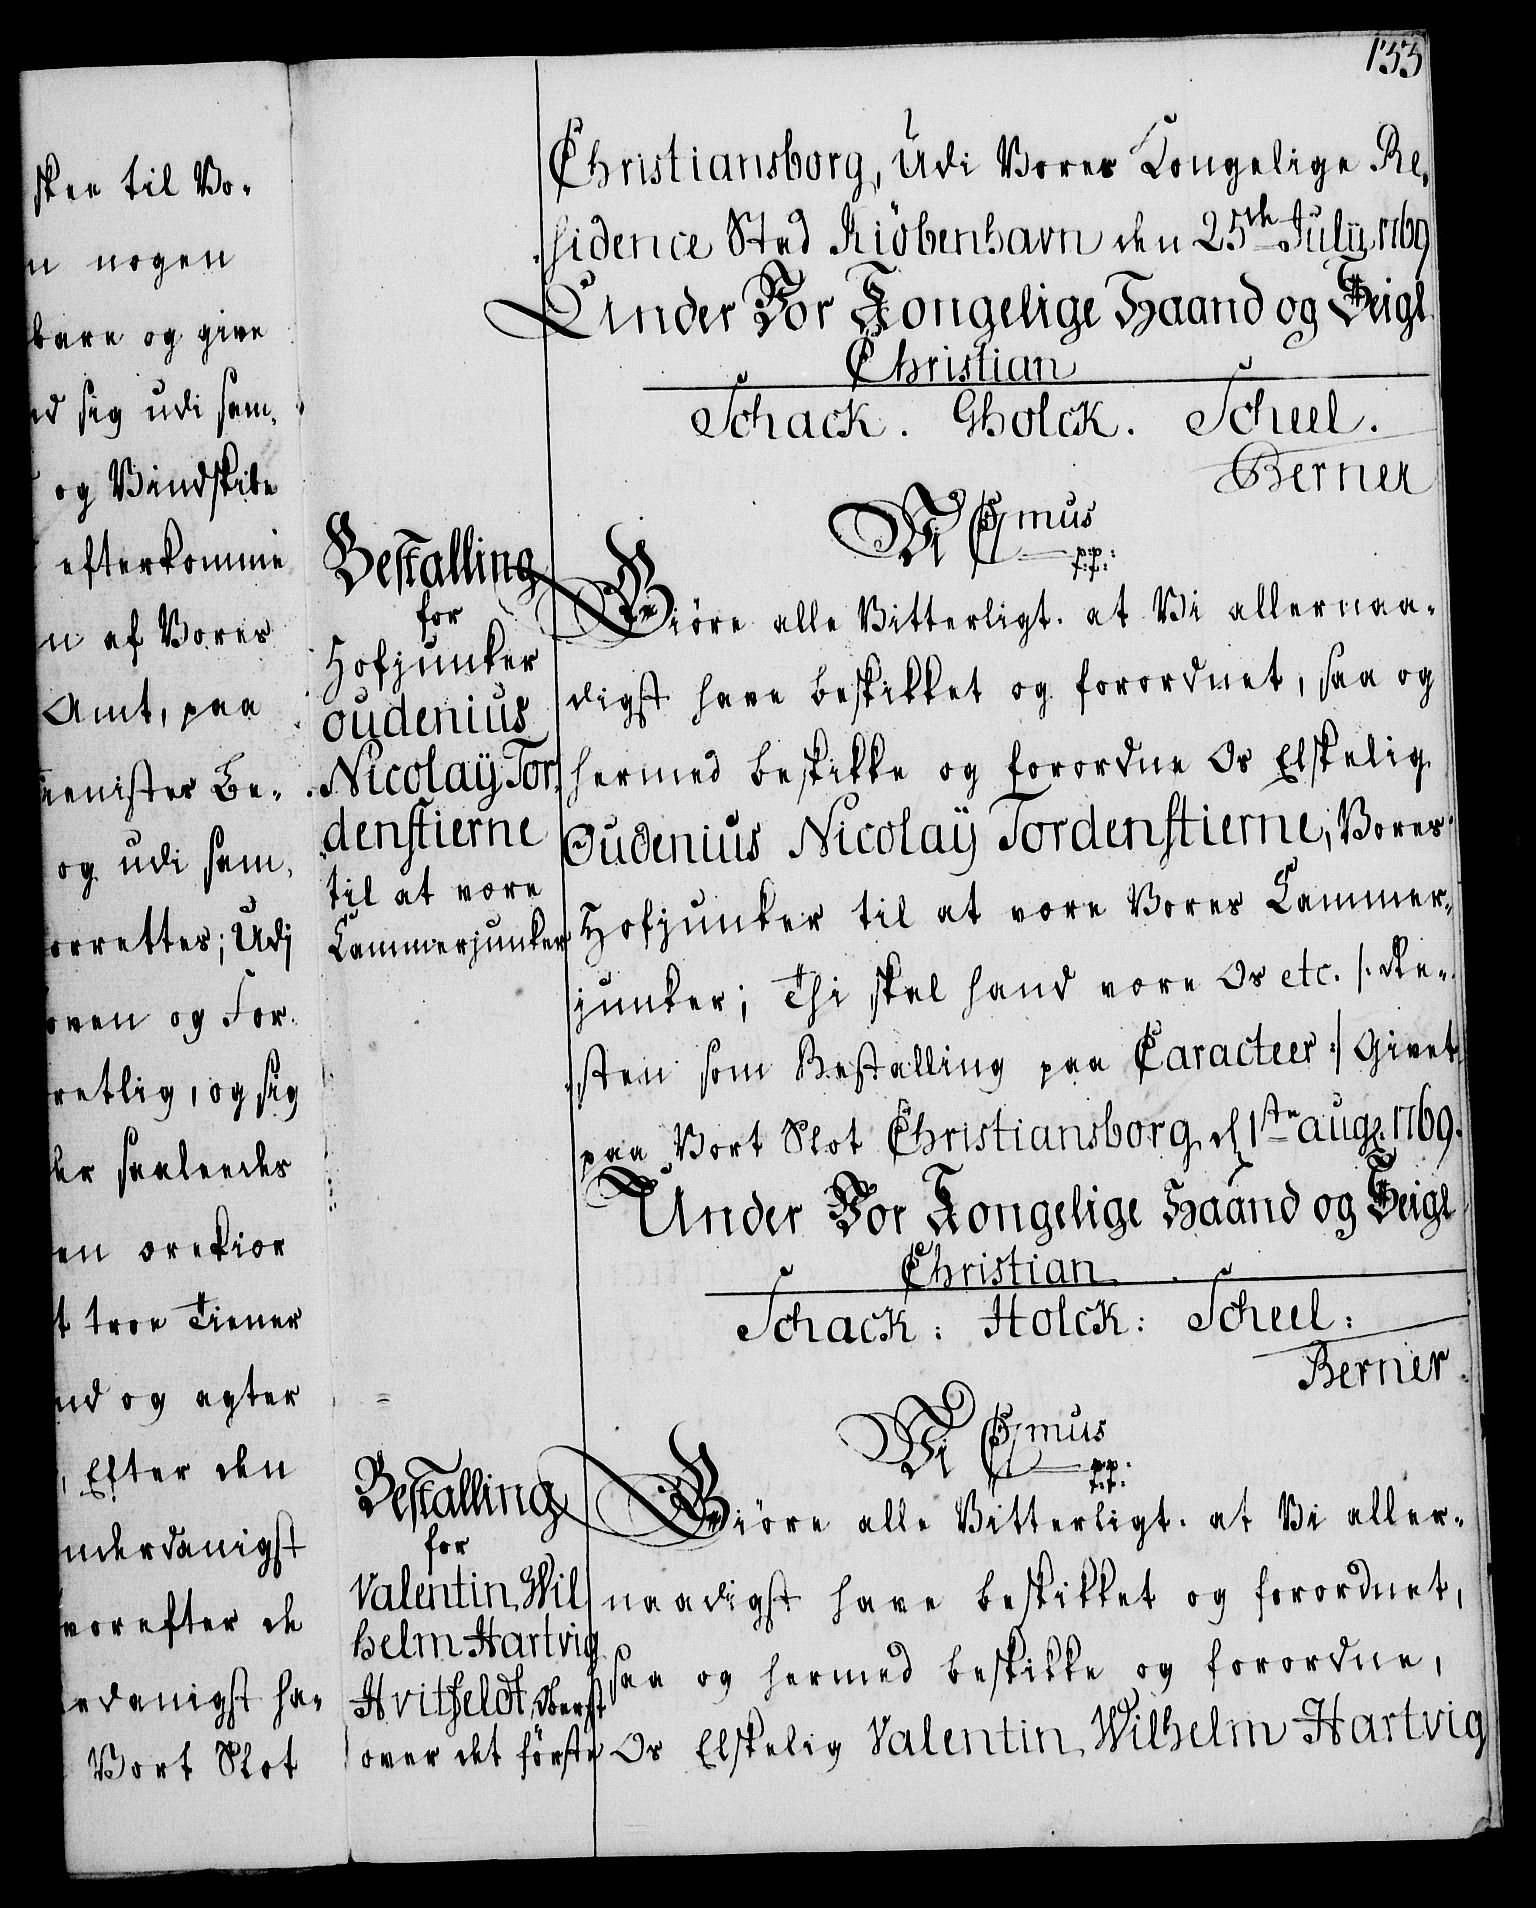 133
skee til Vo-
n nogen
bare og give
d sig udi sam-
og Vindskibe
efterkomme
n af Vores
Amt, paa
ienister Be-
og udi sam-
orrettes; Udi
oven og For-
retlig, og sig
er saaleedes
en Vrekior
t troe Tiener
nd og agter
, Efter den
nderdanigst
vorefter de
erdanigst ha-
Vort Slot
Christiansborg, Udi Vores Kongelige Re-
sidence Stad Kiöbenhavn den 25de July 1769
Under Vor Kongelige Haand og Seigl
Christian
Schack. GHolck. Scheel.
Berner
Vi C7mus
p.p:
t:t:
Bestalling
for
Hofjunker
Oudenius
Nicolaÿ Tor-
denstierne
til at være
Cammerjunker
Giöre alle Vitterligt. at Vi allernaa-
digst have beskikket og forordnet, saa og
hermed beskikke og forordne Os Elskelig
Oudenius Nicolaÿ Tordenstierne, Vores
Hofjunker til at være Vores Cammer-
junker; Thi skal hand være Os etc. /: Re-
sten som Bestalling paa Caracteer :/ Givet
paa Vort Slot Christiansborg d 1ste aug: 1769.
Under Vor Kongelige Haand og Seigl
Christian
Schack: Holck: Scheel:
Berner.
Vi C7mus
p.p.
t:t:
Bestalling
for
Valentin Wil
helm Hartvig
Hvitfeldt, Oberst
over det förste
Giöre alle Vitterligt. at Vi aller-
naadigst have beskikket og forordnet,
saa og hermed beskikke og forordne,
Os Elskelig Valentin Wilhelm Hartvig